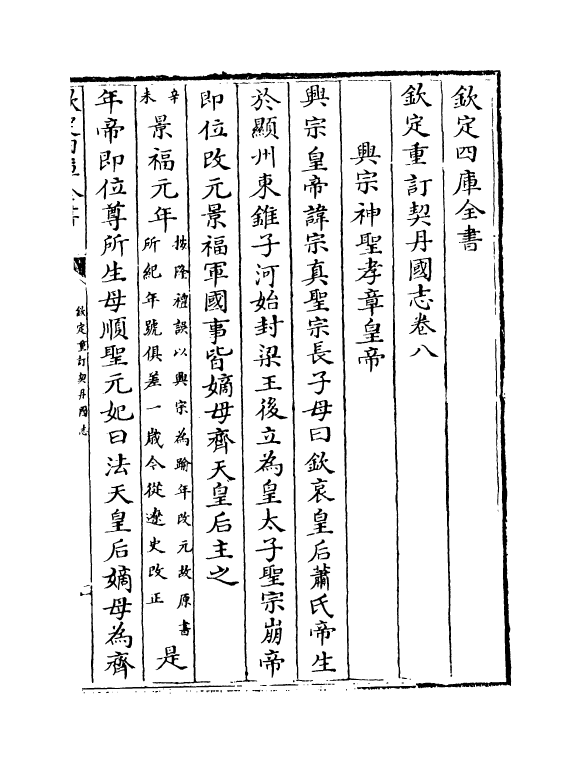 欽定四庫全書
欽定重訂契丹國志卷八
興宗神聖孝章皇帝
興宗皇帝諱宗真聖宗長子母曰欽哀皇后蕭氏帝生
於顯州東錐子河始封梁王後立為皇太子聖宗崩帝
即位改元景福軍國事皆嫡母齊天皇后主之
辛未景福元年按隆禮誤以興宗為踰年改元故原書所紀年號俱差一歲今從遼史改正是
年帝即位尊所生母順聖元妃曰法天皇后嫡母為齊
欽定四庫全書
欽定重訂契丹國志